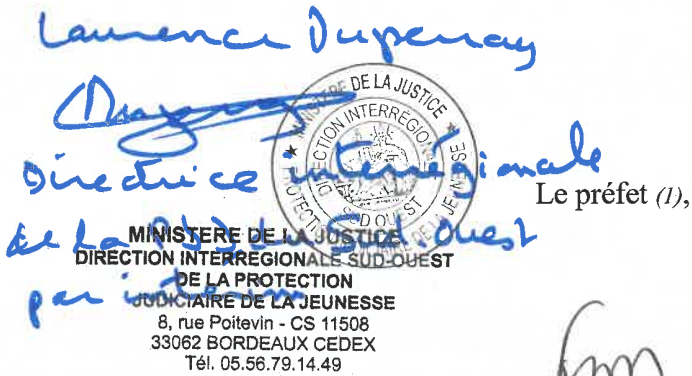 Laurence Dupenay
Directrice interrégionale
de la PJJ du Sud-Ouest
par intérim
MINISTERE DE LA JUSTICE
DIRECTION INTERREGIONALE SUD-OUEST
PROTECTION JUDICIAIRE DE LA JEUNESSE
Le préfet (1),
MINISTERE DE LA JUSTICE
DIRECTION INTERREGIONALE SUD-OUEST
DE LA PROTECTION
JUDICIAIRE DE LA JEUNESSE
8, rue Poitevin - CS 11508
33062 BORDEAUX CEDEX
Tél. 05.56.79.14.49